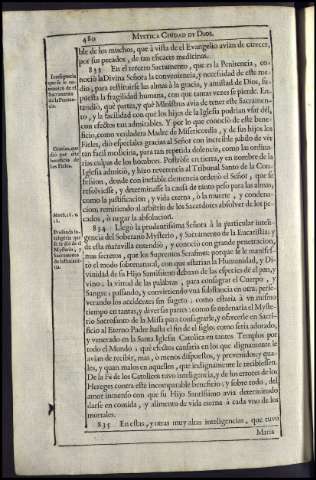 480 MYSTICA CIUDAD DE DIOS.
ble de los muchos, que à vista de el Evangelio avian de carecer,
por sus pecados, de tan eficaces medicinas.
833 En el tercero Sacramento, que es la Penitencia, co-
noció la Divina Señora la conveniencia, y necesidad de este me-
dio, para restituirse las almas à la gracia, y amistad de Dios, su-
puesta la fragilidad humana, con que tantas vezes se pierde. En-
tendió, què partes, y què Ministros avia de tener este Sacramen-
to, y la facilidad con que los hijos de la Iglesia podrian vsar de él,
con efectos tan admirables. Y por lo que conoció de este bene-
ficio, como verdadera Madre de Misericordia, y de sus hijos los
Fieles, dió especiales gracias al Señor con increible jubilo de vèr
tan facil medicina, para tan repetida dolencia, como las ordina-
rias culpas de los hombres. Postròse en tierra, y en nombre de la
Iglesia admitió, y hizo reverencia al Tribunal Santo de la Con-
fession, donde con inefable clemencia ordenó el Señor, que se
resolviesse, y determinasse la causa de tanto peso para las almas,
como la justificacion, y vida eterna, ò la muerte, y condena-
cion, remitiendo al arbitrio de los Sacerdotes absolver de los pe-
cados, ò negar la absolucion.
834 Llegó la prudentissima Señora à la particular inteli-
gencia del Soberano Mysterio, y Sacramento de la Eucaristia; y
de esta maravilla entendió, y conoció con grande penetracion,
mas secretos, que los Supremos Serafines: porque se le manifes-
tó el modo sobrenatural, con que estarian la Humanidad, y Di-
vinidad de su Hijo Santissimo debaxo de las especies de el pan, y
vino: la virtud de las palabras, para consagrar el Cuerpo, y
Sangre; passando, y convirtiendo vna substancia en otra, perse-
verando los accidentes sin sugeto: como estaria à vn mismo
tiempo en tantas, y diversas partes: como se ordenaria el Myste-
rio Sacrosanto de la Missa para consagrarle, y ofrecerle en Sacri-
ficio al Eterno Padre hasta el fin de el siglo: como seria adorado,
y venerado en la Santa Iglesia Catolica en tantos Templos por
todo el Mundo: què efectos causaria en los que dignamente le
avian de recibir, mas, ò menos dispuestos, y prevenidos; y qua-
les, y quan malos en aquellos, que indignamente le recibiessen.
De la Fè de los Catolicos tuvo inteligencia, y de los errores de los
Hereges contra este incomparable beneficio; y sobre todo, del
amor inmenso con que su Hijo Santissimo avia determinado
darse en comida, y alimento de vida eterna à cada vno de los
mortales.
835 En estas, y otras muy altas inteligencias, que tuvo
Maria